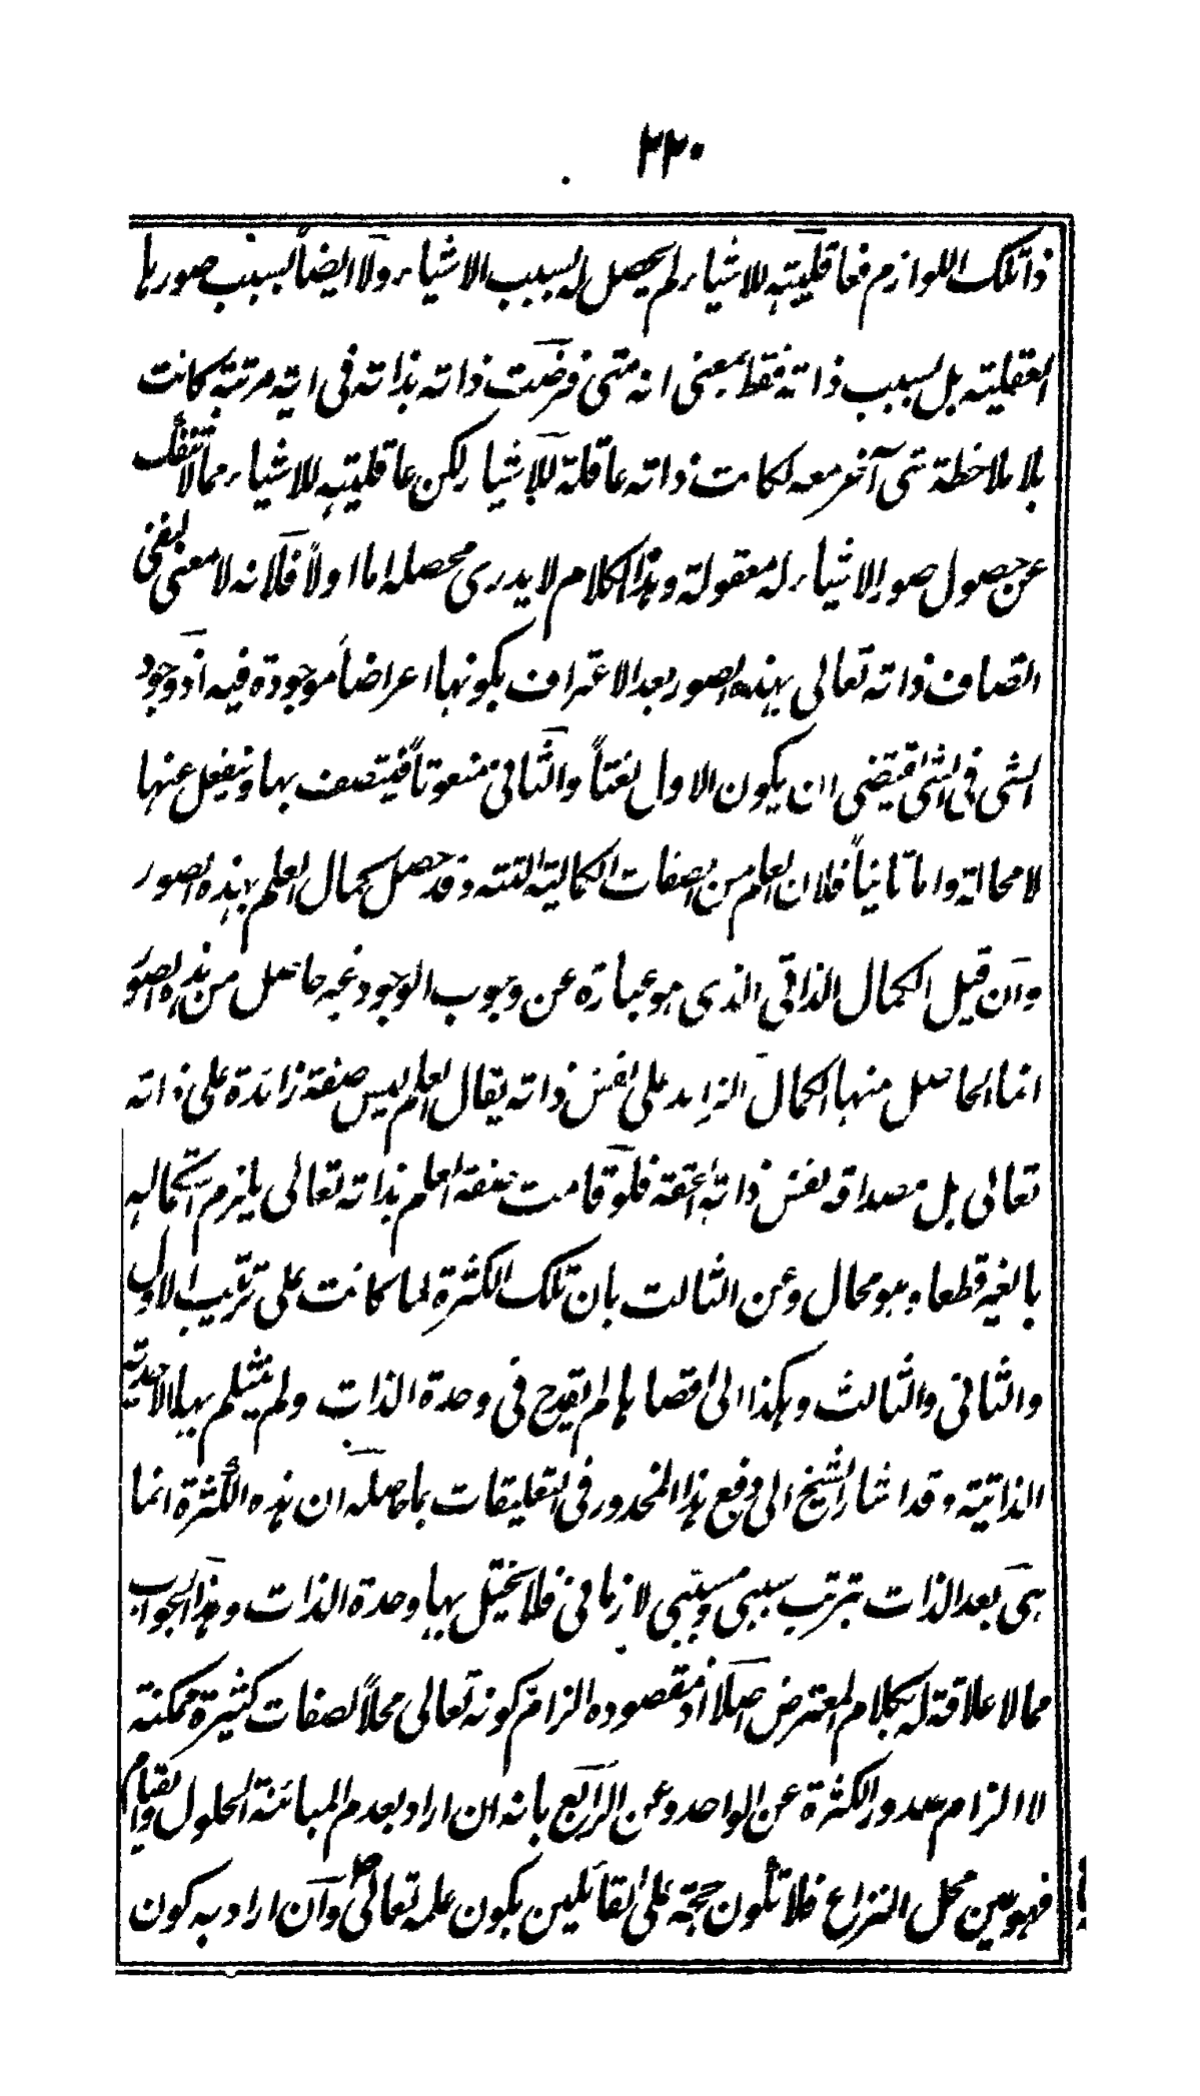 ٢٢٠
ذا تلك اللوازم فعاقليته للاشياء لم يحصل له بسبب الاشياء ولا ايضاً بسبب صورها
العقلية بل بسبب ذاته فقط بمعنى انه متى فرضت ذاته بذاته فى اية مرتبة كانت
بلا ملاحظة شى آخر معه لكانت ذاته عاقلة للاشياء لكن عاقليته للاشياء مما لا تنفك
عن حصول صور الاشياء له معقولة وهذا الكلام لا يدرى محصله اما اولاً فلانه لا معنى لنفى
اتصاف ذاته تعالى بهذه الصور بعد الاعتراف بكونها اعراضاً موجودة فيه اذ وجود
الشى فى الشى يقتضى ان يكون الاول نعتاً والثانى منعوتاً فيتصف بها وينفعل عنها
لا محالة واما ثانياً فلان العلم من الصفات الكمالية وقد حصل كمال العلم بهذه الصور
وان قيل الكمال الذاتى الذى هو عبارة عن وجوب الوجود غير حاصل من هذه الصور
انما الحاصل منها الكمال الزايد على نفس ذاته يقال العلم ليس صفة زائدة على ذاته
تعالى بل مصداقه نفس ذاته الحقة فلو قامت صفة العلم بذاته تعالى يلزم استكماله
بالغير قطعا وهو محال وعن الثالث بان تلك الكثرة لما كانت على ترتيب الاول
والثانى والثالث وهكذا الى اقصاها لم يقدح فى وحدة الذات ولم ينثلم بها الاحدية
الذاتية وقد اشار الشيخ الى دفع هذا المحذور فى التعليقات بما حاصله ان هذه الكثرة انما
هى بعد الذات بترتب سببى ومسببى لا زمانى فلا يختل بها وحدة الذات وهذا الجواب
مما لا علاقة له بكلام المعترض اصلا اذ مقصوده الزام كونه تعالى محلاً لصفات كثيرة ممكنة
لا الزام صدور الكثرة عن الواحد وعن الرابع بانه ان اراد بعدم المبائنة الحلول والقيام
فهو عين محل النزاع فلا تكون حجة على القائلين بكون علمه تعالى وان اراد به كون